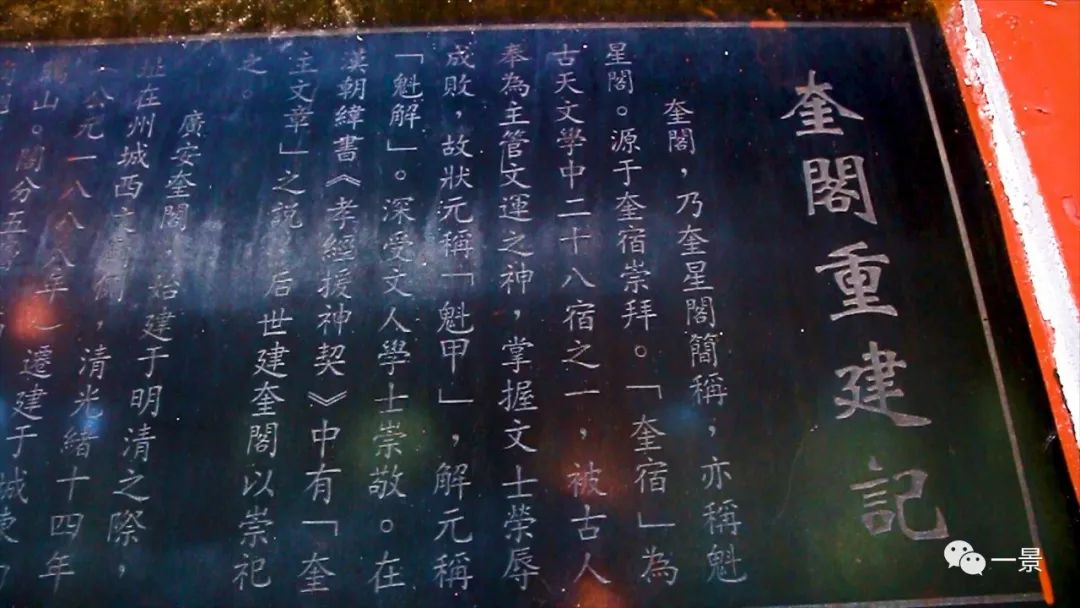 奎閣重建記
奎閣，乃奎星閣簡稱，亦稱魁
星閣。源于奎宿崇拜。「奎宿」為
古天文學中二十八宿之一，被古人
奉為主管文運之神，掌握文士榮辱
成敗，故狀元稱「魁甲」，解元稱
「魁解」。深受文人學士崇敬。在
漢朝緯書《孝經援神契》中有「奎
主文章」之說，后世建奎閣以崇祀
之。
廣安奎閣，始建于明清之際，
址在州城西文
，清光緒十四年
（公元一八八八年）遷建于城東
山。閣分五
一景